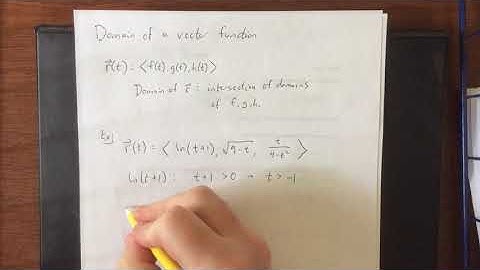 Domain of a vector function
r⃗(t) = ⟨f(t), g(t), h(t)⟩
Domain of r⃗ : intersection of domains
of f, g, h.
Ex) r⃗(t) = ⟨ ln(t+1), √9-t, t/4-t² ⟩
ln(t+1) : t+1 > 0 → t > -1